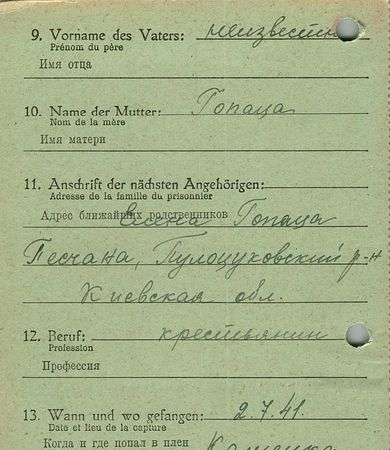 9. Vorname des Vaters: неизвестно
Prénom du père
Имя отца
10. Name der Mutter: Гопаца
Nom de la mère
Имя матери
11. Anschrift der nächsten Angehörigen:
Adresse de la famille du prisonnier
Адрес ближайших родственников Елена Гопаца
Песчана, р-н
Киевская обл.
12. Beruf: крестьянин
Profession
Профессия
13. Wann und wo gefangen: 2.7.41.
Date et lieu de la capture
Когда и где попал в плен